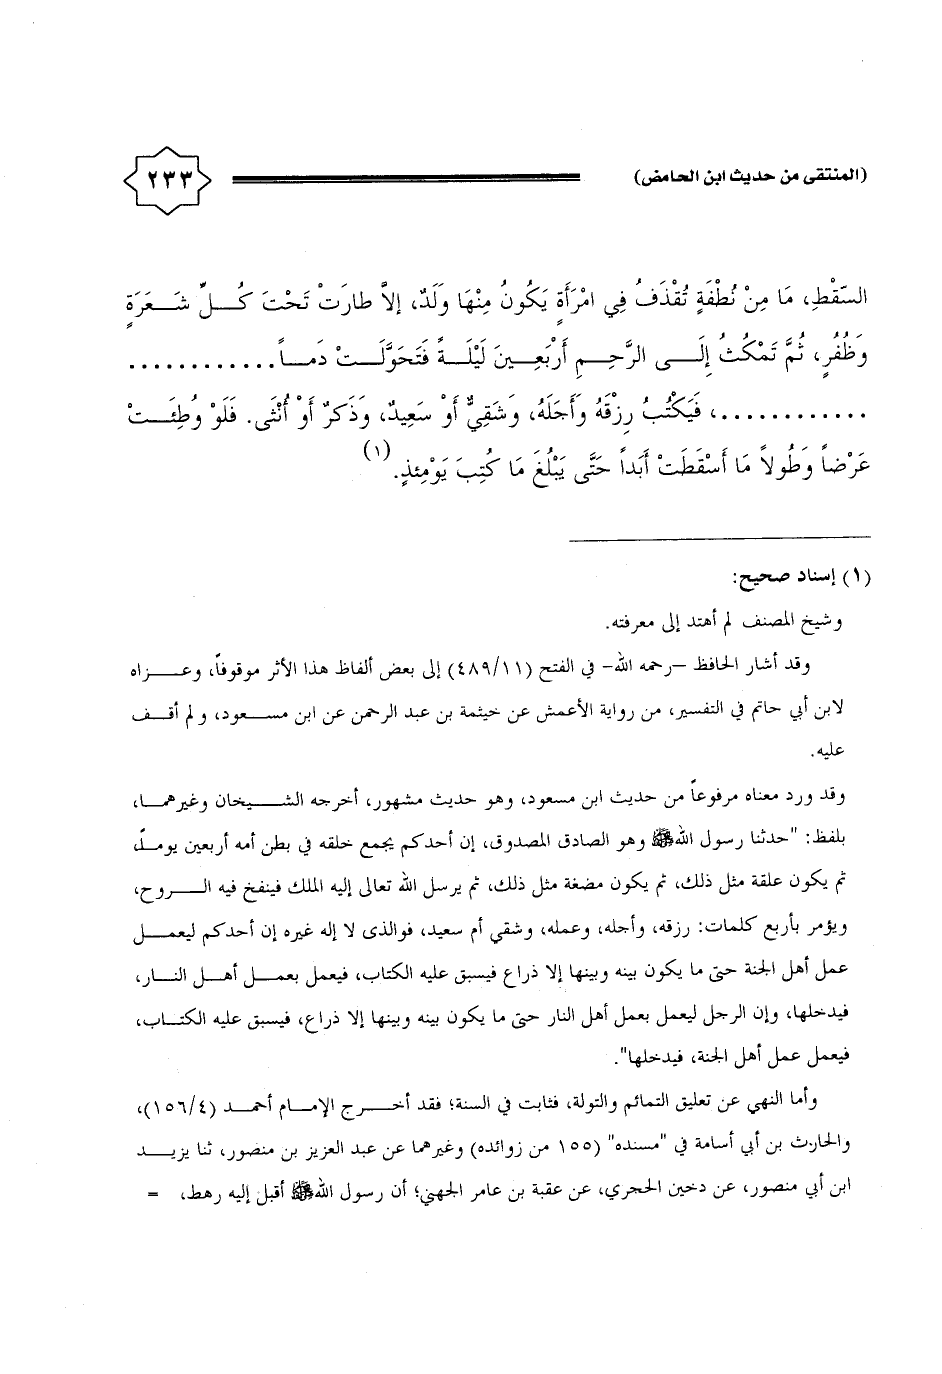 (المنتقى من حديث ابن الحامض) ٢٣٣
السَّقْطِ، مَا مِنْ نُطْفَةٍ تُقْذَفُ فِي امْرَأَةٍ يَكُونُ مِنْهَا وَلَدٌ، إلاَّ طارَتْ تَحْتَ كُـلِّ شَـعَرَةٍ
وَظُفُرٍ، ثُمَّ تَمْكُثُ إِلَـى الرَّحِـمِ أَرْبَعِـينَ لَيْلَـةً فَتَحَوَّلَـتْ دَمـاً............
............، فَيَكْتُبُ رِزْقَهُ وَأَجَلَهُ، وَشَقِيٌّ أَوْ سَعِيدٌ، وَذَكرٌ أَوْ أُنْثَى. فَلَوْ وُطِئَـتْ
عَرْضاً وَطُولاً مَا أَسْقَطَتْ أَبَداً حَتَّى يَبْلُغَ مَا كُتِبَ يَوْمِئذٍ.(١)
(١) إسناد صحيح:
وشيخ المصنف لم أهتد إلى معرفته.
وقد أشار الحافظ –رحمه الله– في الفتح (٤٨٩/١١) إلى بعض ألفاظ هذا الأثر موقوفاً، وعـزاه
لابن أبي حاتم في التفسير، من رواية الأعمش عن خيثمة بن عبد الرحمن عن ابن مسـعود، ولم أقـف
عليه.
وقد ورد معناه مرفوعاً من حديث ابن مسعود، وهو حديث مشهور، أخرجه الشـيخان وغيرهمـا،
بلفظ: "حدثنا رسول الله ﷺ وهو الصادق المصدوق، إن أحدكم يجمع خلقه في بطن أمه أربعين يوماً،
ثم يكون علقة مثل ذلك، ثم يكون مضغة مثل ذلك، ثم يرسل الله تعالى إليه الملك فينفخ فيه الـروح،
ويؤمر بأربع كلمات: رزقه، وأجله، وعمله، وشقي أم سعيد، فوالذى لا إله غيره إن أحدكم ليعمـل
عمل أهل الجنة حتى ما يكون بينه وبينها إلا ذراع فيسبق عليه الكتاب، فيعمل بعمـل أهـل النـار،
فيدخلها، وإن الرجل ليعمل بعمل أهل النار حتى ما يكون بينه وبينها إلا ذراع، فيسبق عليه الكتـاب،
فيعمل عمل أهل الجنة، فيدخلها".
وأما النهي عن تعليق التمائم والتولة، فثابت في السنة؛ فقد أخـرج الإمـام أحمـد (١٥٦/٤)،
والحارث بن أبي أسامة في "مسنده" (١٥٥ من زوائده) وغيرهما عن عبد العزيز بن منصور، ثنا يزيـد
ابن أبي منصور، عن دخين الحجري، عن عقبة بن عامر الجهني؛ أن رسول الله ﷺ أقبل إليه رهط، =